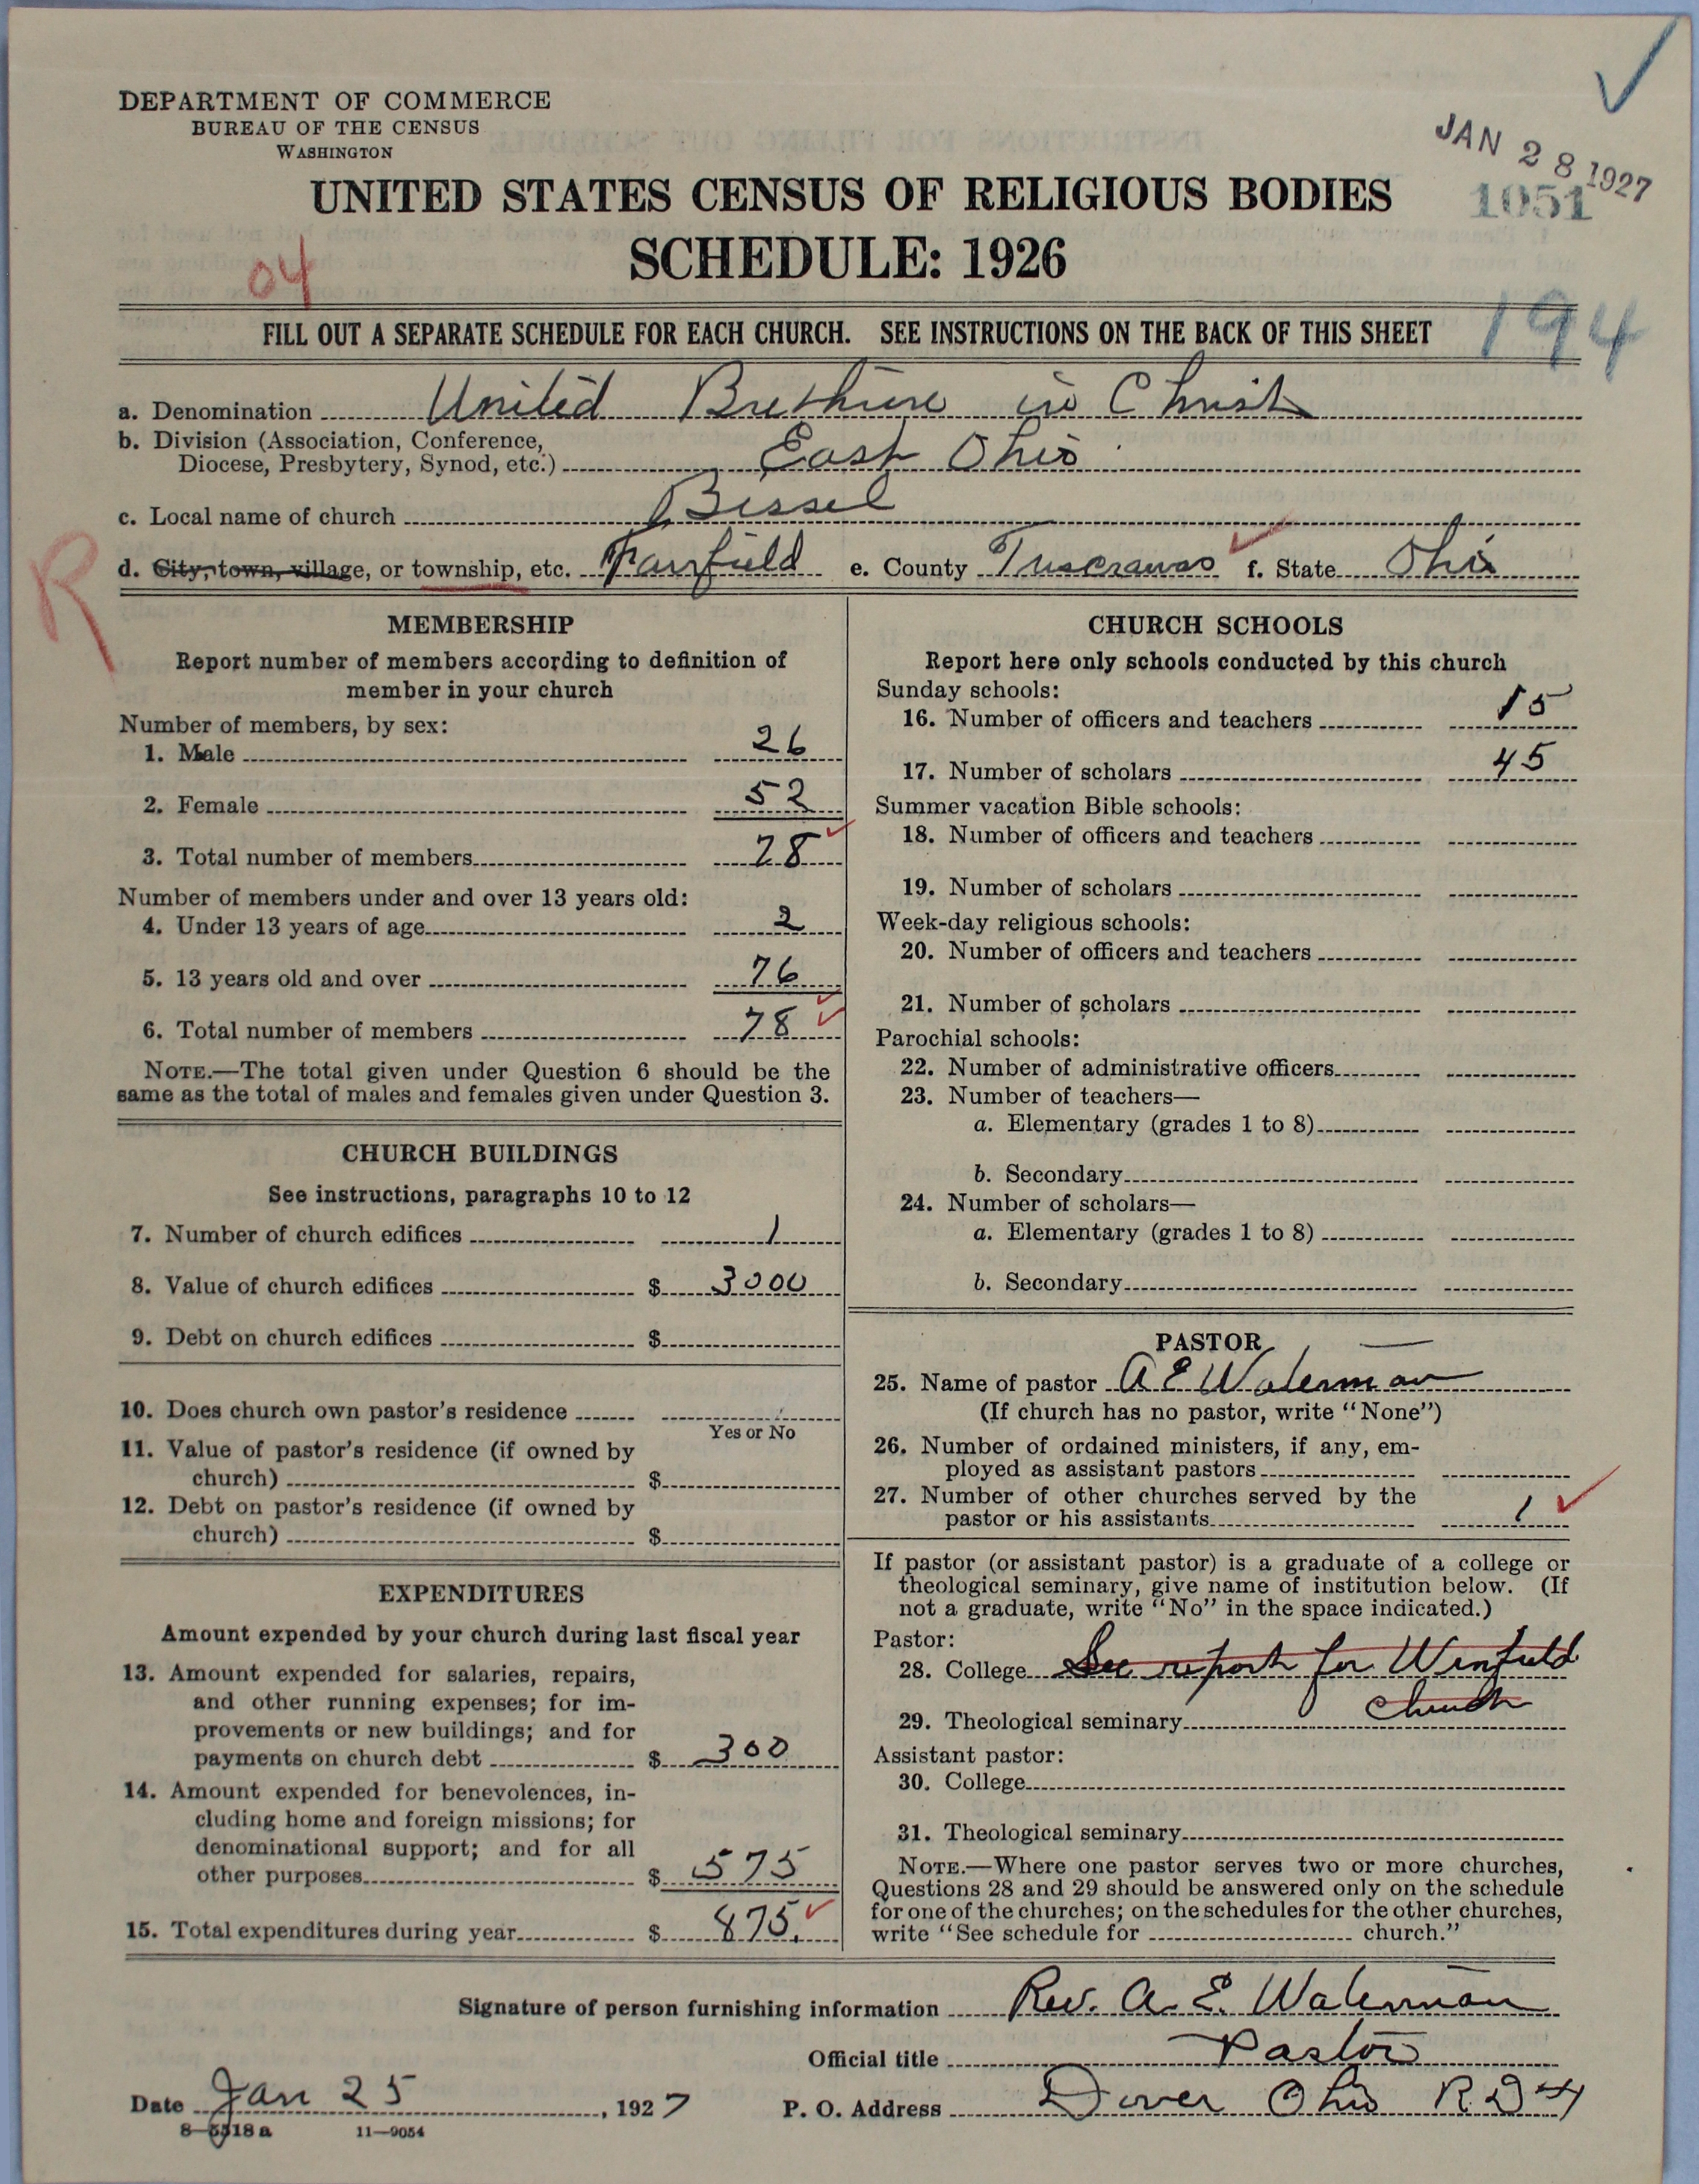 DEPARTMENT OF COMMERCE
BUREAU OF THE CENSUS
WASHINGTON
JAN 28 1927
1051
UNITED STATES CENSUS OF RELIGIOUS BODIES
SCHEDULE: 1926
04
FILL OUT A SEPARATE SCHEDULE FOR EACH CHURCH. SEE INSTRUCTIONS ON THE BACK OF THIS SHEET
194
a. Denomination United Brethren in Christ
b. Division (Association, Conference,
Diocese, Presbytery, Synod, etc.) East Ohio
c. Local name of church Bissel
R
d. City, town, village, or township, etc. Fairfield e. County Tuscrawas f. State Ohio
MEMBERSHIP
Report number of members according to definition of
member in your church
Number of members, by sex:
1. Male 26
2. Female 52
3. Total number of members 78
Number of members under and over 13 years old:
4. Under 13 years of age 2
5. 13 years old and over 76
6. Total number of members 78
NOTE.—The total given under Question 6 should be the
same as the total of males and females given under Question 3.
CHURCH BUILDINGS
See instructions, paragraphs 10 to 12
7. Number of church edifices 1
8. Value of church edifices $ 3000
9. Debt on church edifices $
10. Does church own pastor's residence
Yes or No
11. Value of pastor's residence (if owned by
church) $
12. Debt on pastor's residence (if owned by
church) $
EXPENDITURES
Amount expended by your church during last fiscal year
13. Amount expended for salaries, repairs,
and other running expenses; for im-
provements or new buildings; and for
payments on church debt $ 300
14. Amount expended for benevolences, in-
cluding home and foreign missions; for
denominational support; and for all
other purposes $ 575
15. Total expenditures during year $ 875.
CHURCH SCHOOLS
Report here only schools conducted by this church
Sunday schools:
16. Number of officers and teachers 15
17. Number of scholars 45
Summer vacation Bible schools:
18. Number of officers and teachers
19. Number of scholars
Week-day religious schools:
20. Number of officers and teachers
21. Number of scholars
Parochial schools:
22. Number of administrative officers
23. Number of teachers—
a. Elementary (grades 1 to 8)
b. Secondary
24. Number of scholars—
a. Elementary (grades 1 to 8)
b. Secondary
PASTOR
25. Name of pastor A E Waterman
(If church has no pastor, write "None")
26. Number of ordained ministers, if any, em-
ployed as assistant pastors
27. Number of other churches served by the
pastor or his assistants 1
If pastor (or assistant pastor) is a graduate of a college or
theological seminary, give name of institution below. (If
not a graduate, write "No" in the space indicated.)
Pastor:
28. College See report for Winfield
church
29. Theological seminary
Assistant pastor:
30. College
31. Theological seminary
NOTE.—Where one pastor serves two or more churches,
Questions 28 and 29 should be answered only on the schedule
for one of the churches; on the schedules for the other churches,
write "See schedule for church."
Signature of person furnishing information Rev. A. E. Waterman
Official title Pastor
Date Jan 25, 1927 P. O. Address Dover Ohio R D 4
8—5318a 11—9054